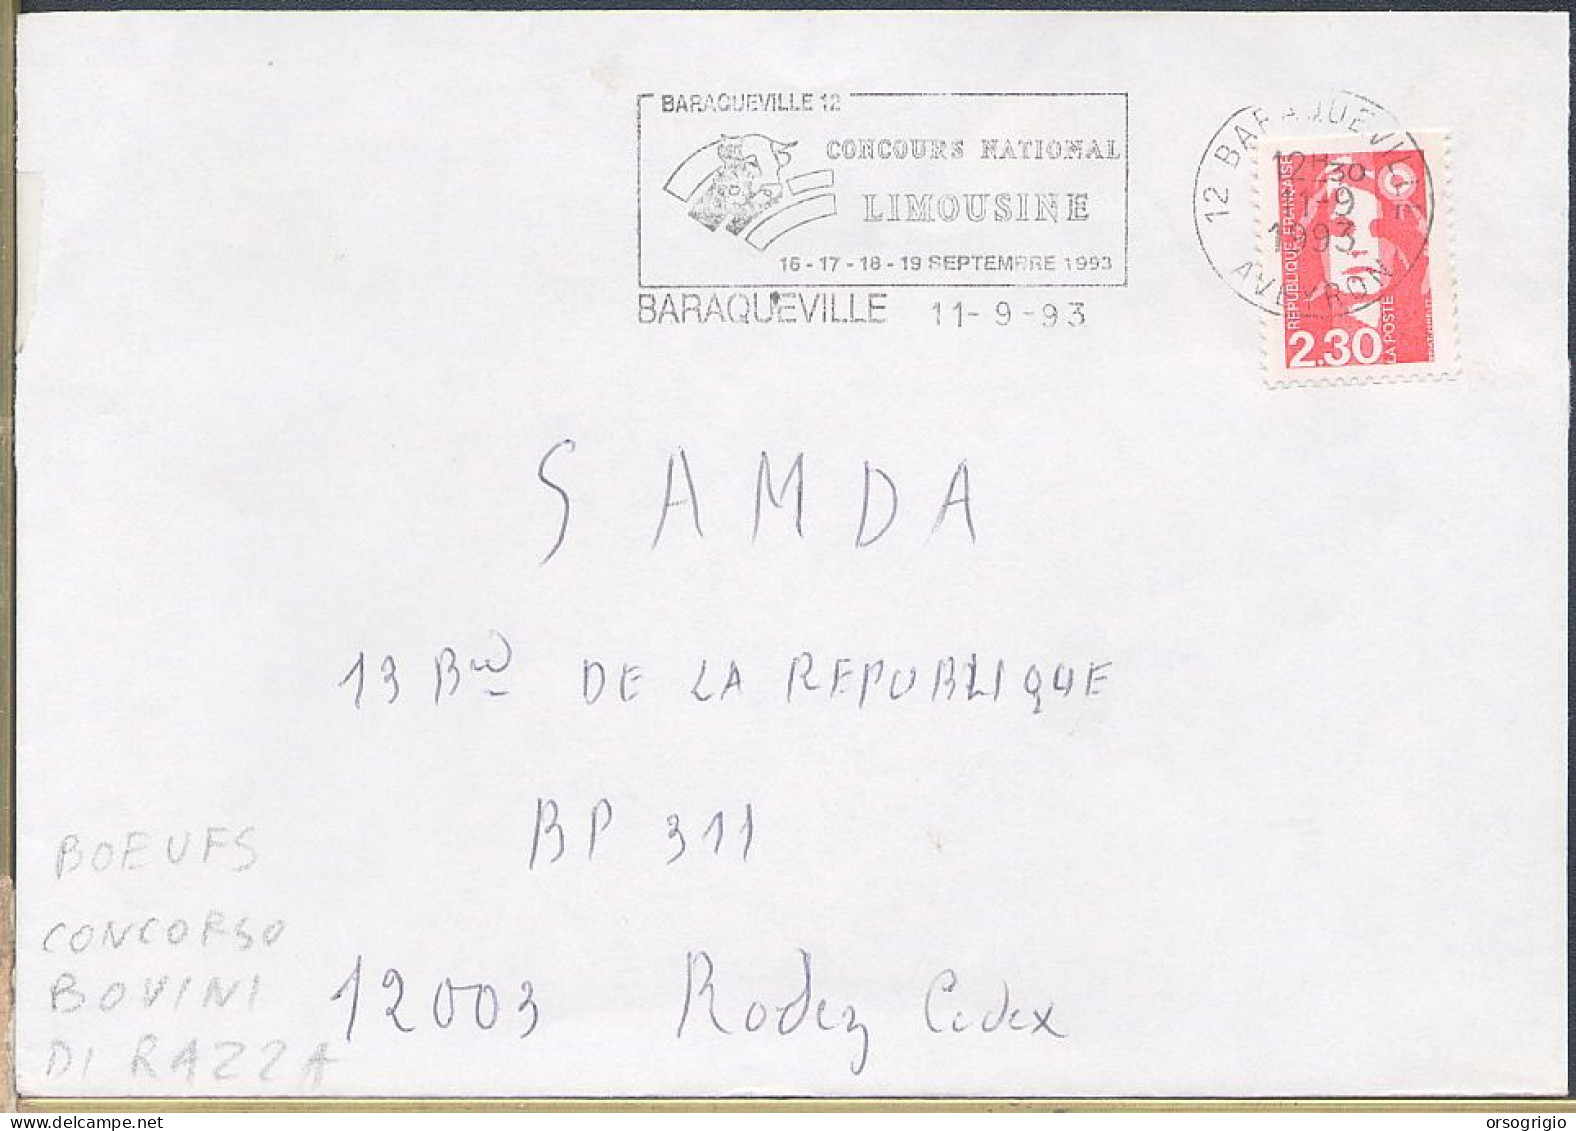 BARAQUEVILLE 12
CONCOURS NATIONAL
LIMOUSINE
16 - 17 - 18 - 19 SEPTEMBRE 1993
BARAQUEVILLE 11-9-93
12 BARAQUEVILLE
12H30
11-9
1993
AVEYRON
REPUBLIQUE FRANÇAISE
2,30
LA POSTE
SAMDA
13 Bvd DE LA REPUBLIQUE
BP 311
12003 Rodez Cedex
BOEUFS
CONCORSO
BOVINI
DI RAZZA
orsogrigio